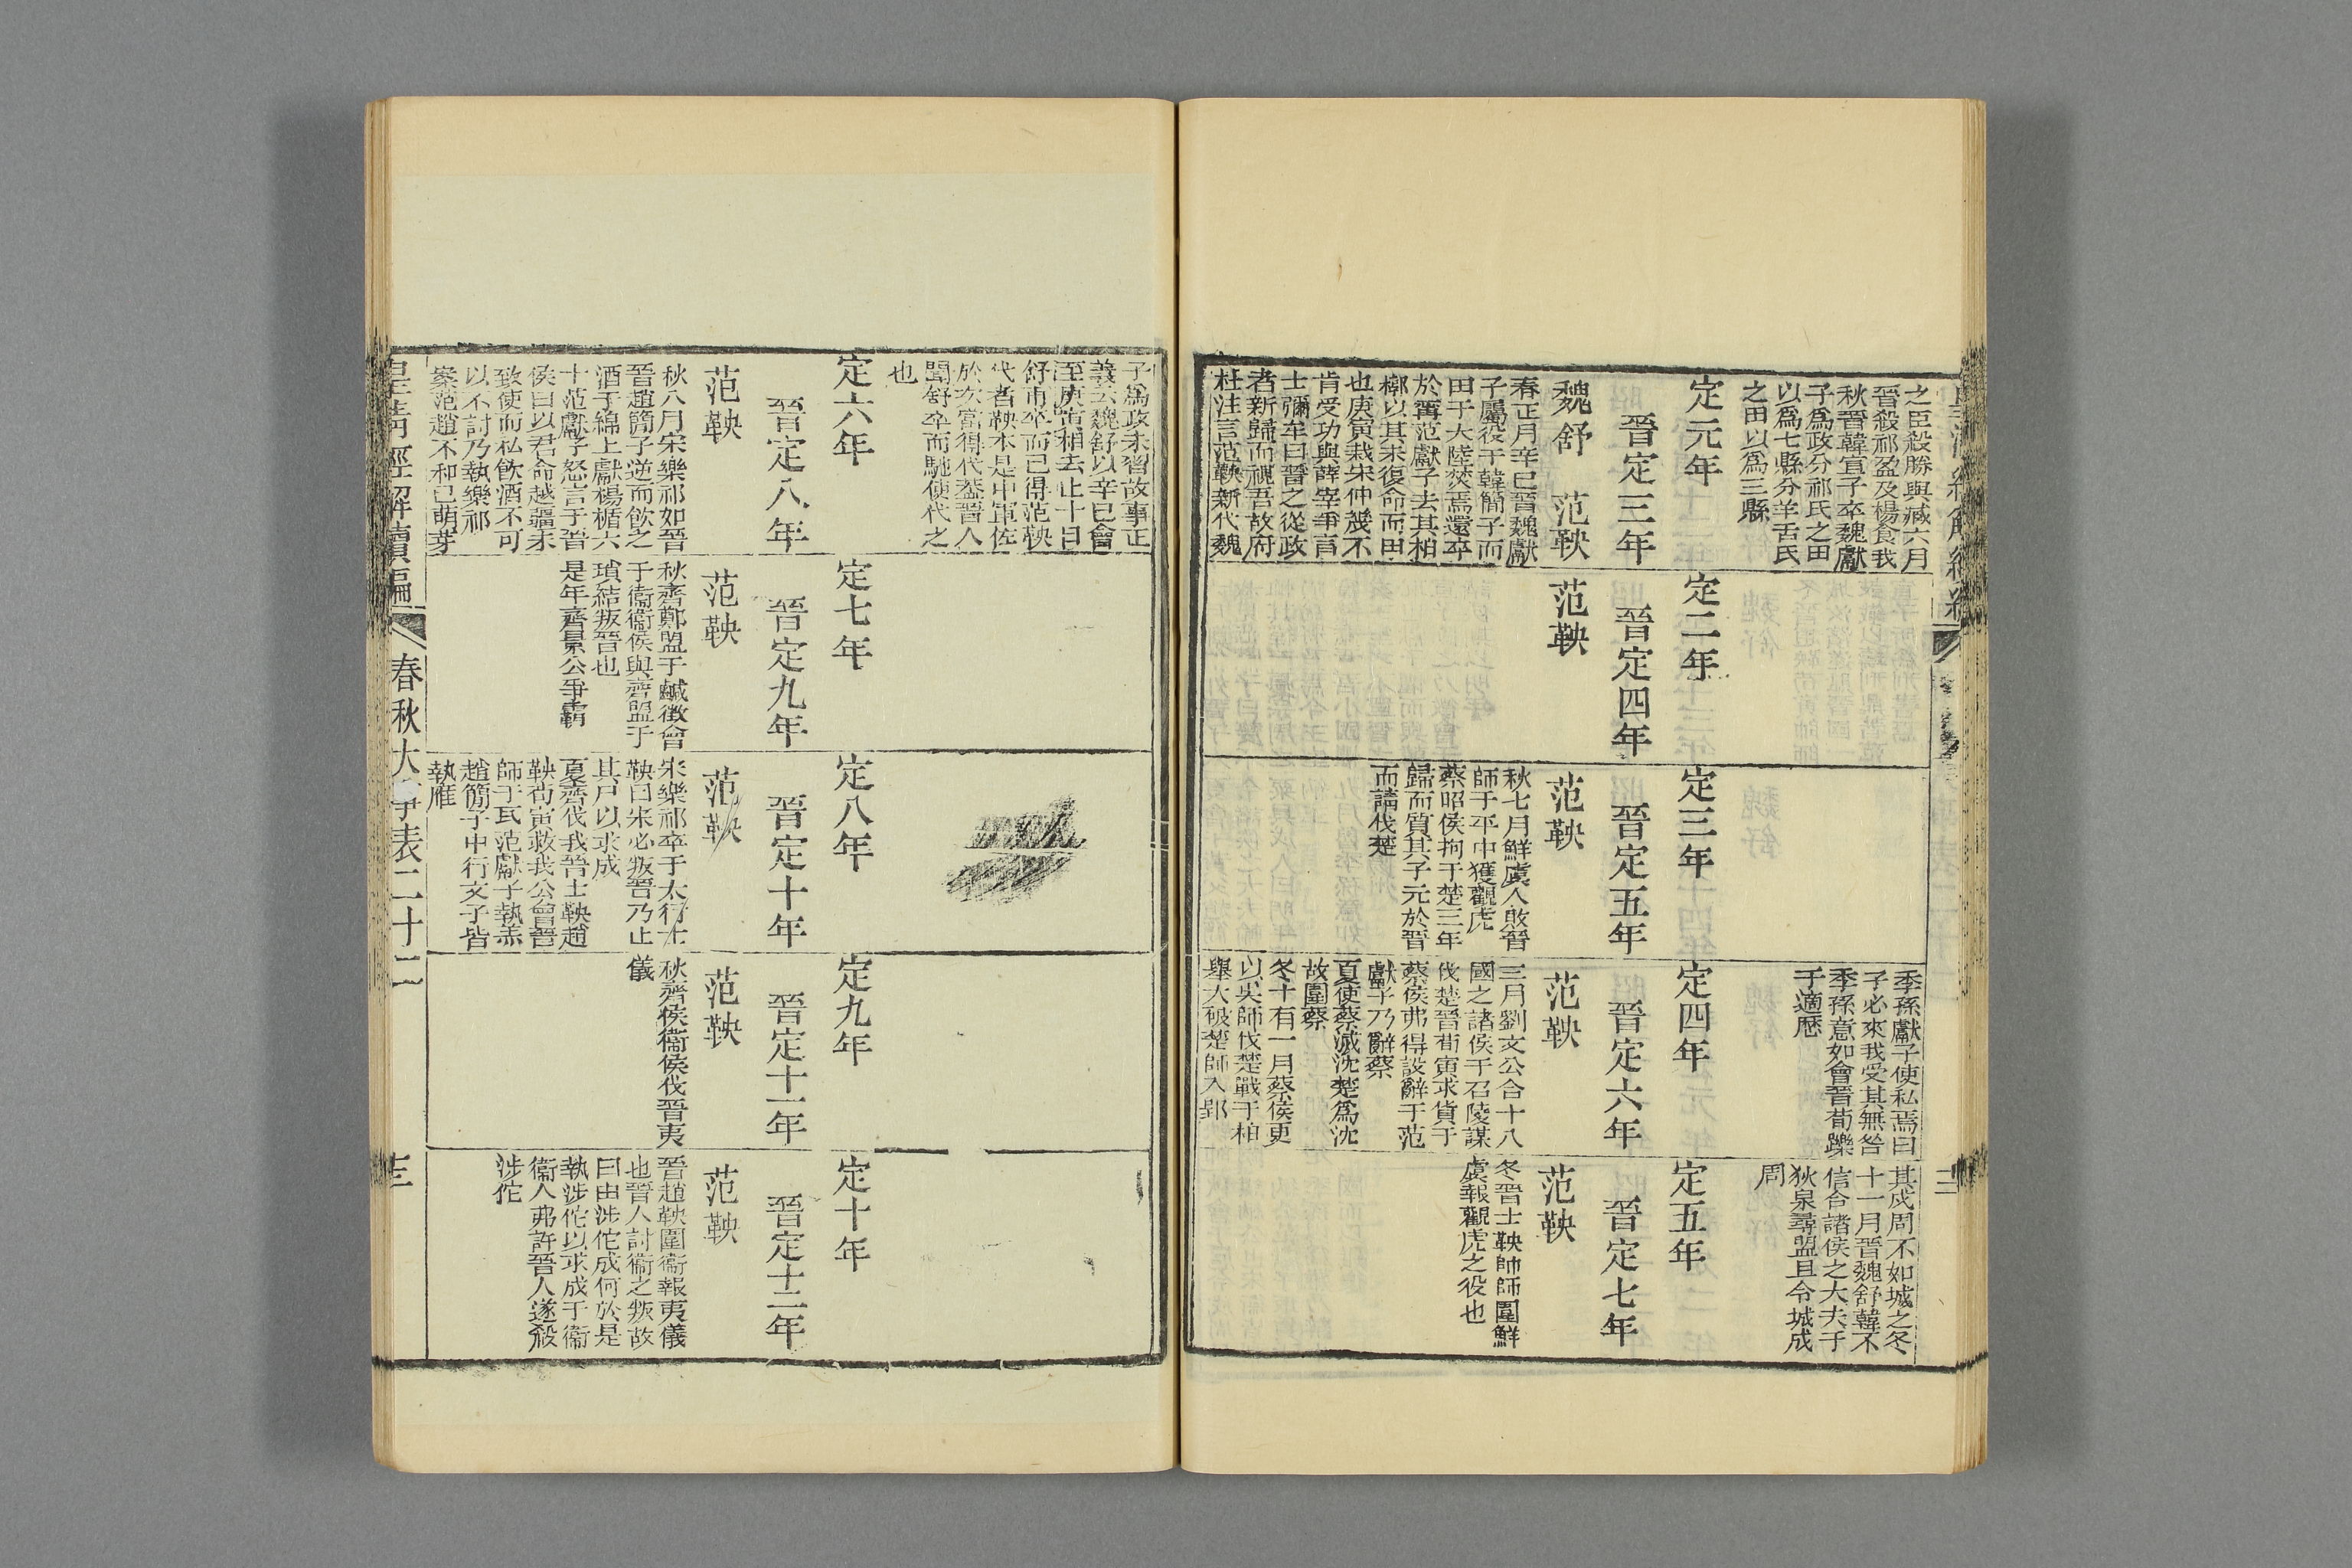 之臣殺勝與臧六月
晉殺祁盈及楊食我
秋晉韓宣子卒魏獻
子爲政分祁氏之田
以爲七縣分羊舌氏
之田以爲三縣
季孫獻子使私焉曰
子必來我受其無咎
季孫意如會晉荀躒
于適歷
其戍周不如城之冬
十一月晉魏舒韓不
信合諸侯之大夫于
狄泉尋盟且令城成
周
定元年
晉定三年
魏舒 范鞅
春正月辛巳晉魏獻
子屬役于韓簡子而
田于大陸焚焉還卒
於甯范獻子去其柏
槨以其未復命而田
也庚寅栽宋仲幾不
肯受功與薛宰爭言
士彌牟曰晉之從政
者新歸而視吾故府
杜注言范鞅新代魏
定二年
晉定四年
范鞅
定三年
晉定五年
范鞅
秋七月鮮虞人敗晉
師于平中獲觀虎
蔡昭侯拘于楚三年
歸而質其子元於晉
而請伐楚
定四年
晉定六年
范鞅
三月劉文公合十八
國之諸侯于召陵謀
伐楚晉荀寅求貨于
蔡侯弗得設辭于范
獻子乃辭蔡
夏使蔡滅沈楚爲沈
故圍蔡
冬十有一月蔡侯更
以吳師伐楚戰于柏
舉大破楚師入郢
定五年
晉定七年
范鞅
冬晉士鞅帥師圍鮮
虞報觀虎之役也
子爲政未習故事正
義云魏舒以辛巳會
至庚寅相去止十日
舒甫卒而已得范鞅
代者鞅本是中軍佐
於次當得代葢晉人
聞舒卒而馳使代之
也
定六年
晉定八年
范鞅
秋八月宋樂祁如晉
晉趙簡子逆而飮之
酒于綿上獻楊楯六
十范獻子怒言于晉
侯曰以君命越疆未
致使而私飮酒不可
以不討乃執樂祁
案范趙不和已萌芽
定七年
晉定九年
范鞅
秋齊鄭盟于鹹徵會
于衞衞侯與齊盟于
瑣結叛晉也
是年齊景公爭霸
定八年
晉定十年
范鞅
宋樂祁卒于太行士
鞅曰宋必叛晉乃止
其尸以求成
夏齊伐我晉士鞅趙
鞅荀寅救我公會晉
師于瓦范獻子執羔
趙簡子中行文子皆
執雁
定九年
晉定十一年
范鞅
秋齊侯衞侯伐晉夷
儀
定十年
晉定十二年
范鞅
晉趙鞅圍衞報夷儀
也晉人討衞之叛故
曰由涉佗成何於是
執涉佗以求成于衞
衞人弗許晉人遂殺
涉佗
皇清經解續編
春秋大事表二十二